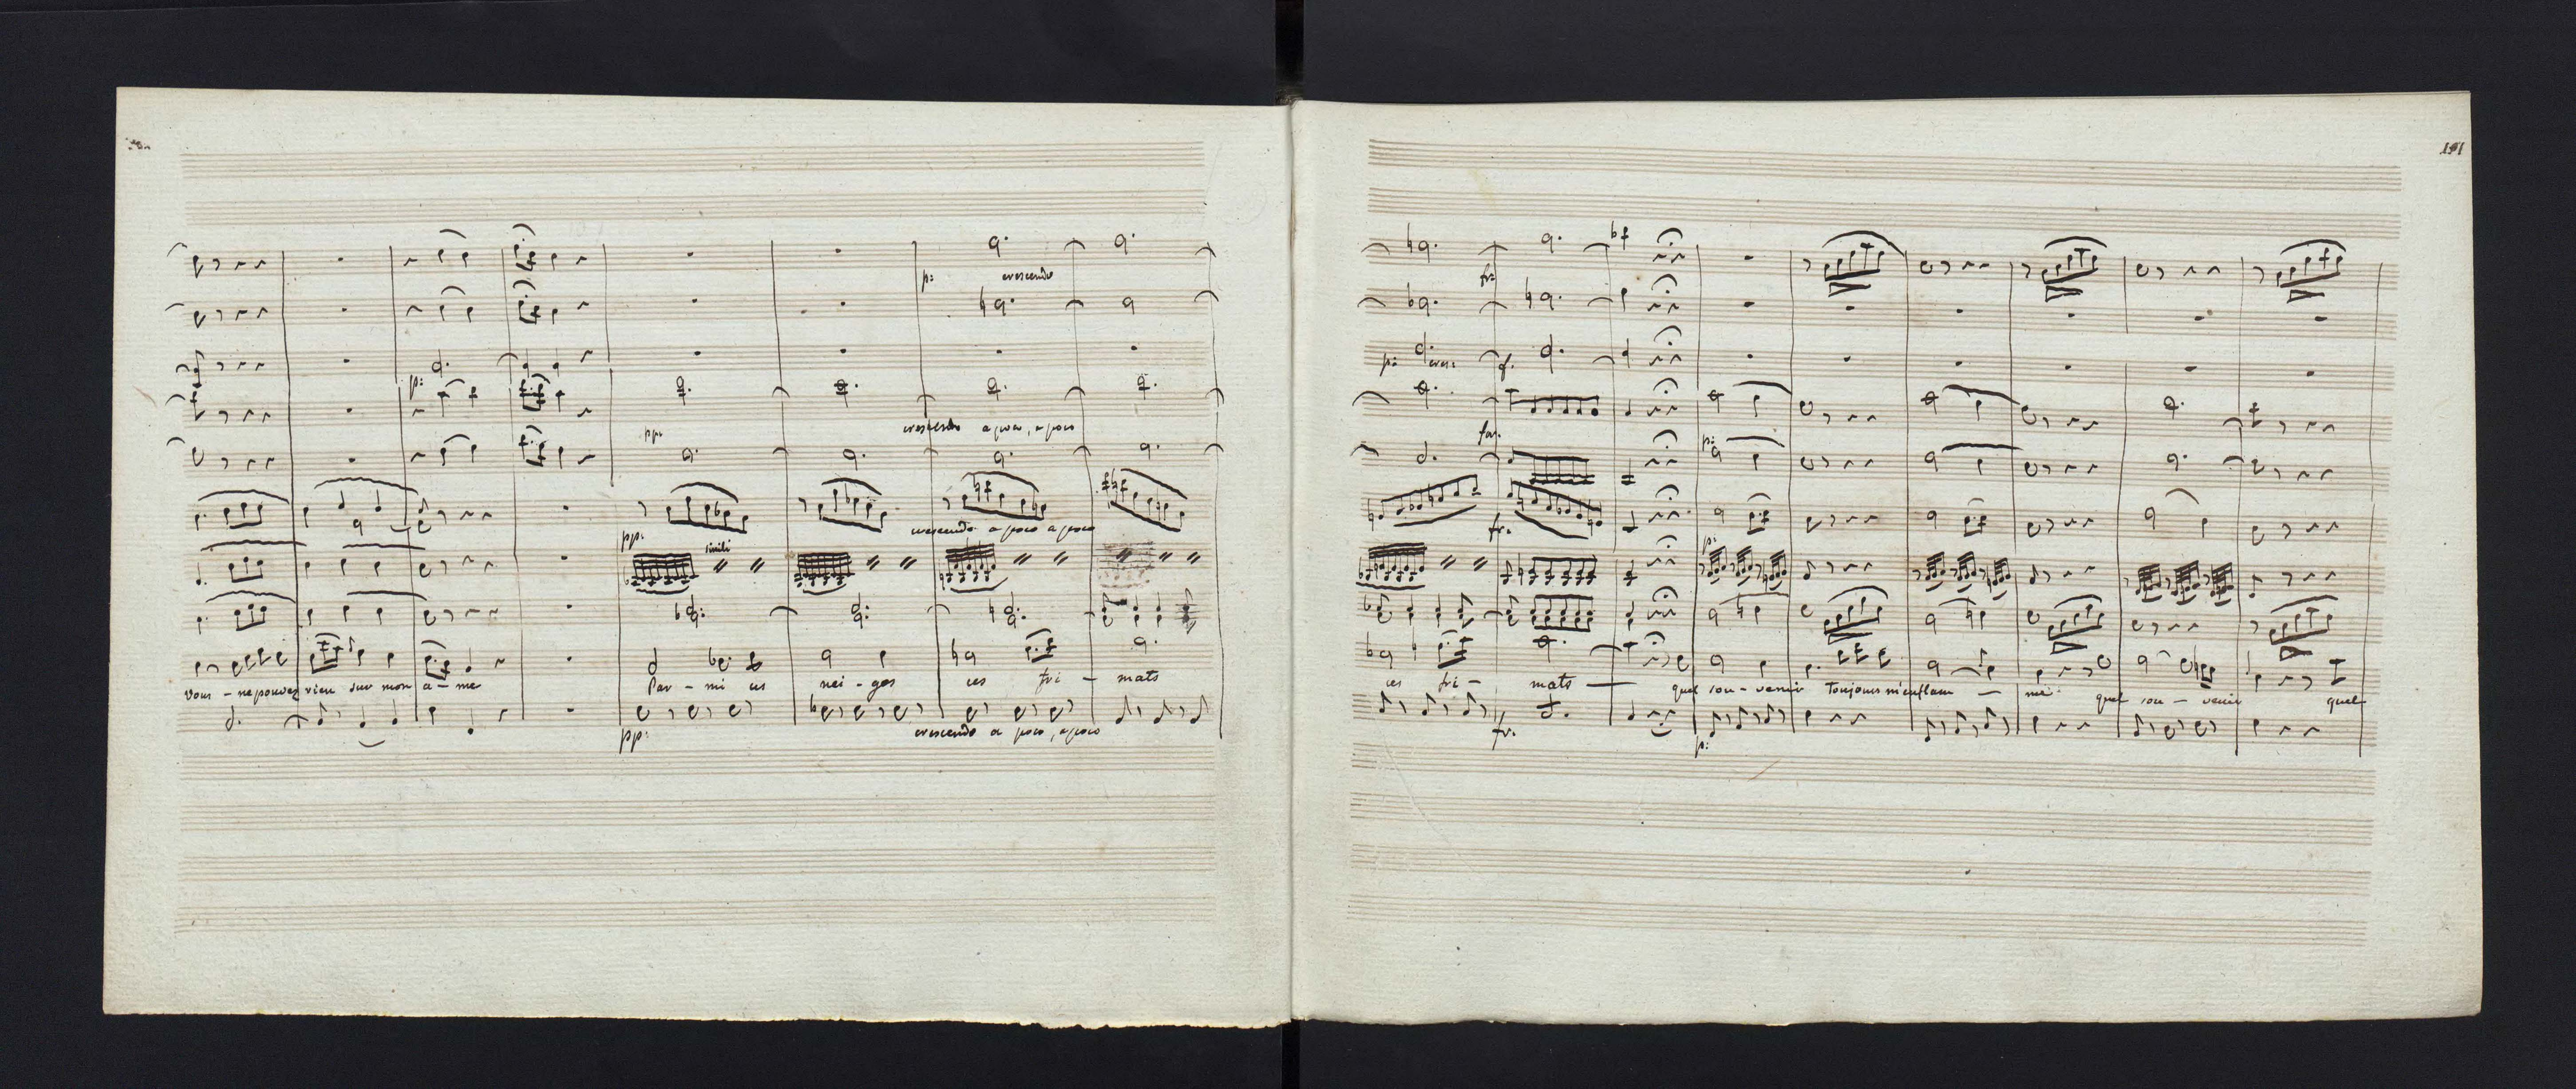 p: crescendo
p:
crescendo a poco, a poco
pp.
crescendo a poco a poco
pp. simili
vous - ne pouvez rien sur mon a - me Par - mi ces nei - ges ces fri - mats
crescendo a poco, a poco
pp:
191
fr:
p: cres: f.
for.
p:
fr.
p:
ces fri - mats quel sou - venir Toujours m'enflam - me quel sou - venir quel
fr.
p: